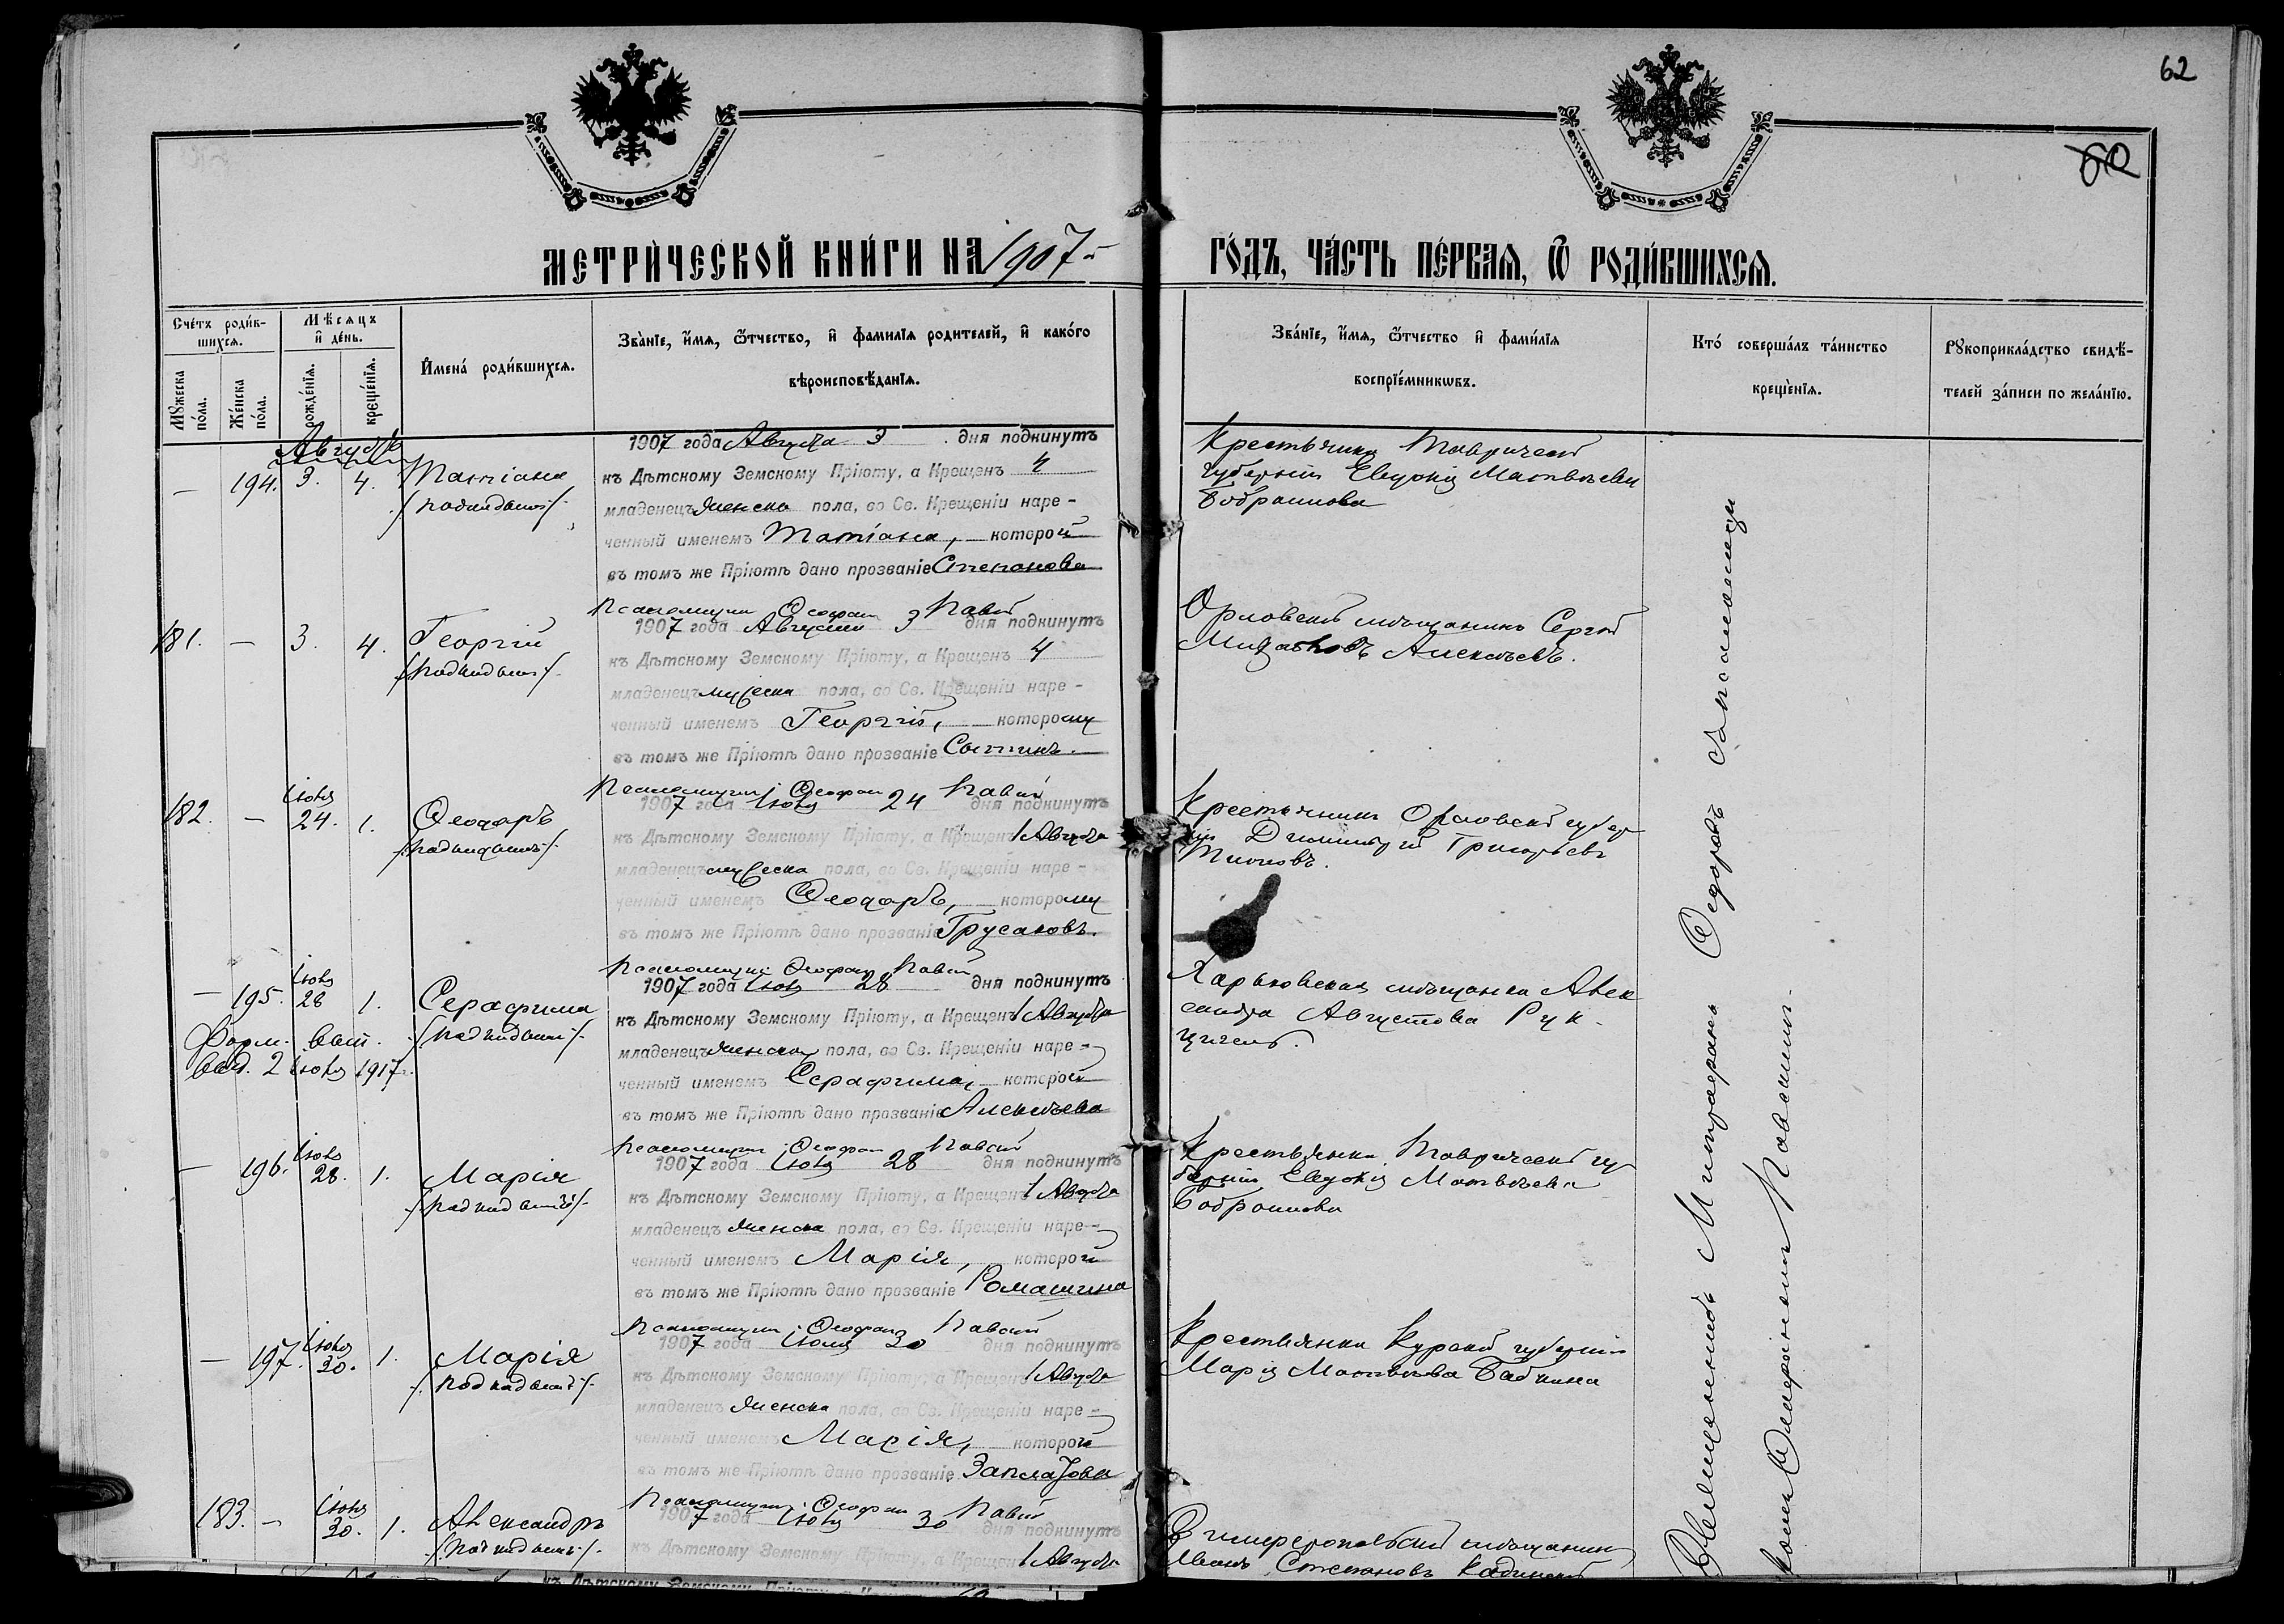 62
МЕТРИ́ЧЕСКОЙ КНИ́ГИ НА 1907 ГО́ДЪ, ЧА́СТЬ ПЕ́РВАЯ, Ѡ РОДИ́ВШИХСЯ.
Сче́тъ роди́в-
шихся.
Мѣ́сяцъ
и҆ де́нь.
Мꙋжеска по́ла.
Же́нска по́ла.
рожде́нїя.
креще́нїя.
И҆мена́ роди́вшихся.
Зва́нїе, и҆́мя, ѻ҆́тчество, и҆ фамилїя родителей, и҆ како́го
вѣроисповѣ́данїя.
Зва́нїе, и҆́мя, ѻ҆́тчество и҆ фами́лїя
воспрїе́мникѡвъ.
Кто́ соверша́лъ та́инство
креще́нїя.
Рꙋкоприкла́дство свидѣ́-
телей за́писи по жела́нїю.
Августъ
— 194. 3. 4. Татіана
/подкидышъ/
1907 года Августа 3 дня подкинутъ
къ Дѣтскому Земскому Пріюту, а Крещенъ 4
младенецъ женска пола, во Св. Крещеніи наре-
ченный именемъ Татіана, которой
въ томъ же Пріютѣ дано прозваніе Степанова
Крестьянка Тавричес
губерніи Евдокія Матвѣева
Бобрашова
181. — 3. 4. Георгій
/подкидышъ/
Псаломщикъ Ѳеофан
1907 года Августа 3 дня подкинутъ
къ Дѣтскому Земскому Пріюту, а Крещенъ 4
младенецъ мужеска пола, во Св. Крещеніи наре-
ченный именемъ Георгій, которому
въ томъ же Пріютѣ дано прозваніе
Орловскій мѣщанинъ Сергѣй
Алексѣевъ.
182. — Іюля 24. 1. Ѳеодоръ
/подкидышъ/
Псаломщикъ Ѳеофан
1907 года Іюля 24 дня подкинутъ
къ Дѣтскому Земскому Пріюту, а Крещенъ 1 Августа
младенецъ мужеска пола, во Св. Крещеніи наре-
ченный именемъ Ѳеодоръ, которому
въ томъ же Пріютѣ дано прозваніе Грусаковъ.
Крестьянинъ Орловской губер
ніи Димитрій Григорьевъ
Титовъ.
— 195. Іюля 28 1. Серафима
/подкидышъ/
вып.
вед. 2 Іюля 1917
Псаломщикъ Ѳеофан
1907 года Іюля 28 дня подкинутъ
къ Дѣтскому Земскому Пріюту, а Крещенъ 1 Августа
младенецъ женска пола, во Св. Крещеніи наре-
ченный именемъ Серафима, которой
въ томъ же Пріютѣ дано прозваніе Алексѣева
Харьковская мѣщанка Алек
сандра Августова Рук-
— 196. Іюля 28. 1. Марія
/подкидышъ/
Псаломщикъ Ѳеофан
1907 года Іюля 28 дня подкинутъ
къ Дѣтскому Земскому Пріюту, а Крещенъ 1 Августа
младенецъ женска пола, во Св. Крещеніи наре-
ченный именемъ Марія, которой
въ томъ же Пріютѣ дано прозваніе Ромашина
Крестьянка Таврической гу
берніи Евдокія Матвѣева
Бобрашова
— 197. Іюля 30. 1. Марія
/подкидышъ/
Псаломщикъ Ѳеофан
1907 года Іюля 30 дня подкинутъ
къ Дѣтскому Земскому Пріюту, а Крещенъ 1 Августа
младенецъ женска пола, во Св. Крещеніи наре-
ченный именемъ Марія, которой
въ томъ же Пріютѣ дано прозваніе
Крестьянка Курской губерніи
Марія Бабкина
183. — Іюля 30. 1. Александръ
/подкидышъ/
Псаломщикъ Ѳеофан
1907 года Іюля 30 дня подкинутъ
къ Дѣтскому Земскому Пріюту, а Крещенъ 1 Августа
Симферопольскій мѣщанинъ
Иванъ Степановъ
Священникъ Митрофанъ Ѳедоровъ